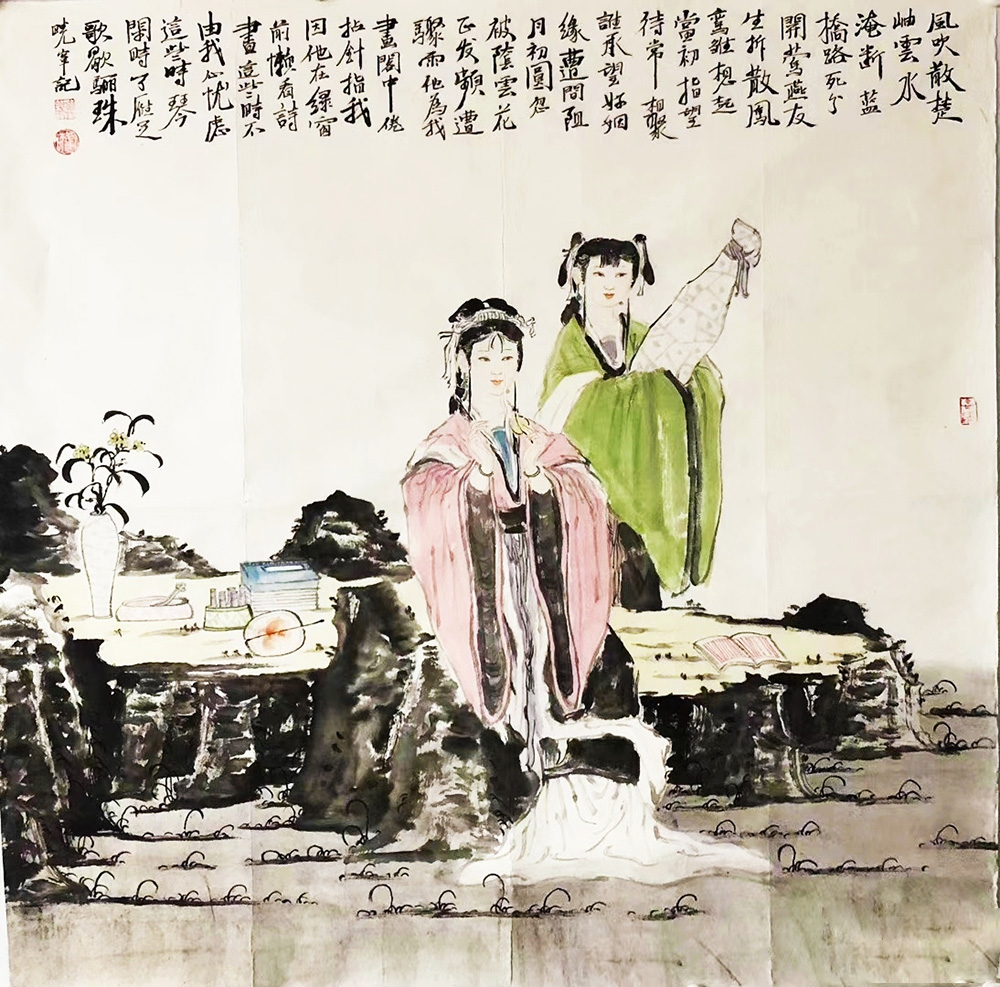 風吹散楚
岫雲水
淹断 藍
橋路死分
開鶯燕友
生拆散鳳
鸞雛想起
當初指望
待常相聚
誰承望好姻
緣遭間阻
月初圓忽
被陰雲花
正发頻遭
驟雨他為我
畫閣中倦
拈針指我
因他在緑窗
前懒看詩
書這些時不
由我心忧虑
這些時琴
閑時了
歌歇骊珠
記